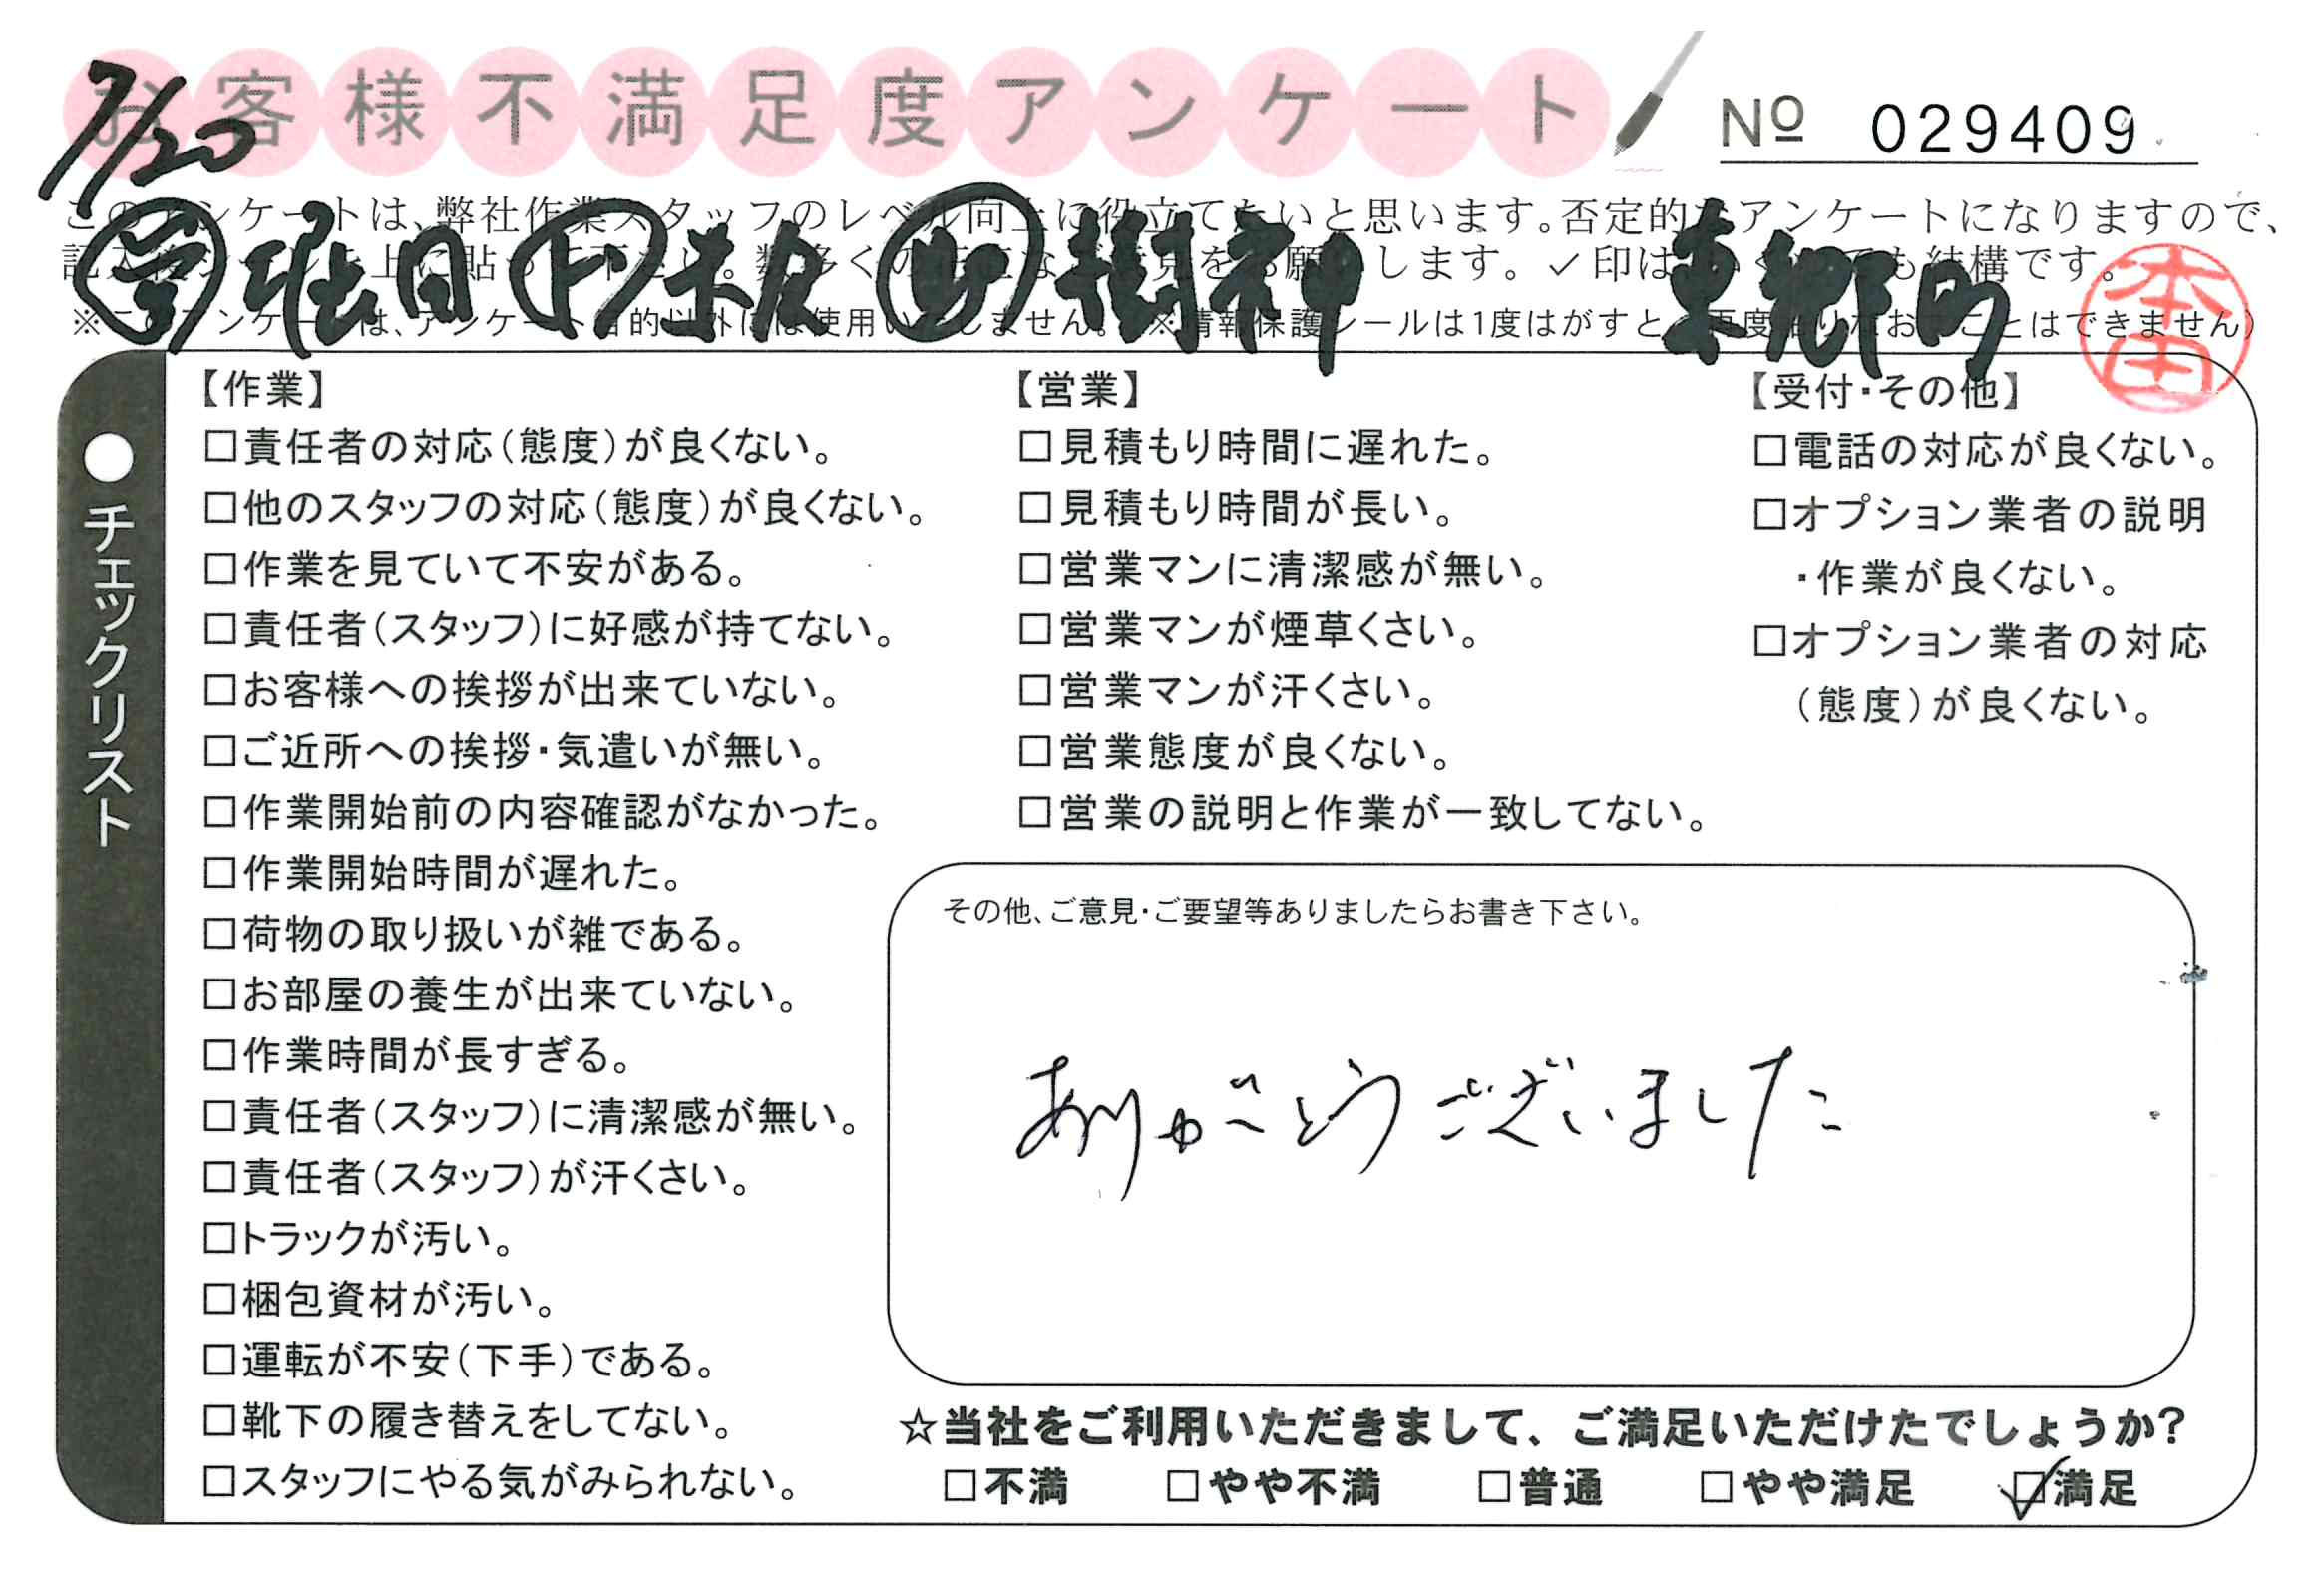 お客様不満足度アンケート
7/20
№ 029409
このアンケートは、弊社作業スタッフのレベル向上に役立てたいと思います。否定的なアンケートになりますので、
記入後シールを上に貼って下さい。数多くの正直なご意見をお願いします。✓印はいくつでも結構です。
堀田 樹神 東郷町
本田
※このアンケートは、アンケート目的以外には使用いたしません。(※情報保護シールは1度はがすと、再度貼りなおすことはできません)
●チェックリスト
【作業】
□責任者の対応(態度)が良くない。
□他のスタッフの対応(態度)が良くない。
□作業を見ていて不安がある。
□責任者(スタッフ)に好感が持てない。
□お客様への挨拶が出来ていない。
□ご近所への挨拶・気遣いが無い。
□作業開始前の内容確認がなかった。
□作業開始時間が遅れた。
□荷物の取り扱いが雑である。
□お部屋の養生が出来ていない。
□作業時間が長すぎる。
□責任者(スタッフ)に清潔感が無い。
□責任者(スタッフ)が汗くさい。
□トラックが汚い。
□梱包資材が汚い。
□運転が不安(下手)である。
□靴下の履き替えをしてない。
□スタッフにやる気がみられない。
【営業】
□見積もり時間に遅れた。
□見積もり時間が長い。
□営業マンに清潔感が無い。
□営業マンが煙草くさい。
□営業マンが汗くさい。
□営業態度が良くない。
□営業の説明と作業が一致してない。
【受付・その他】
□電話の対応が良くない。
□オプション業者の説明
・作業が良くない。
□オプション業者の対応
(態度)が良くない。
その他、ご意見・ご要望等ありましたらお書き下さい。
ありがとうございました
☆当社をご利用いただきまして、ご満足いただけたでしょうか?
□不満 □やや不満 □普通 □やや満足 ☑満足